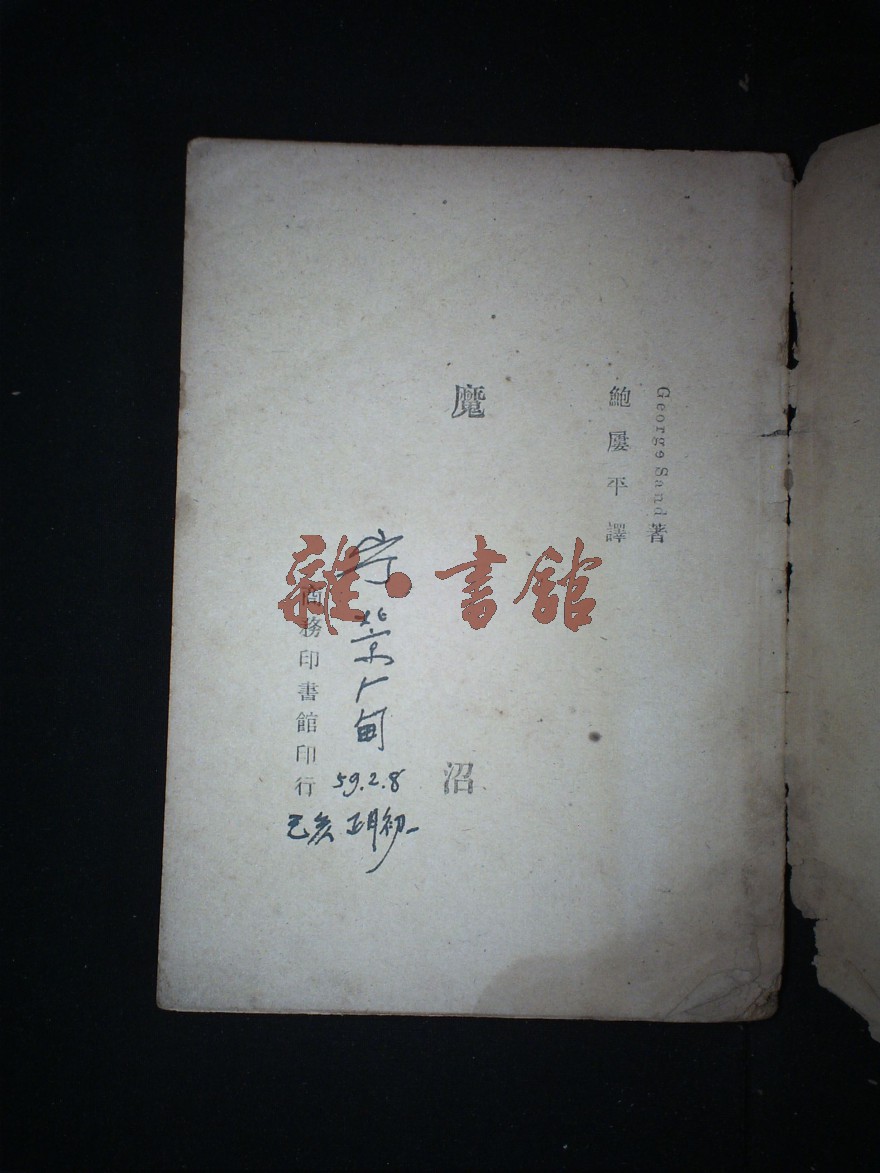 George Sand 著
鮑屢平譯
魔沼
北京厂甸
59.2.8
己亥正月初一
商務印書館印行
雜·書館